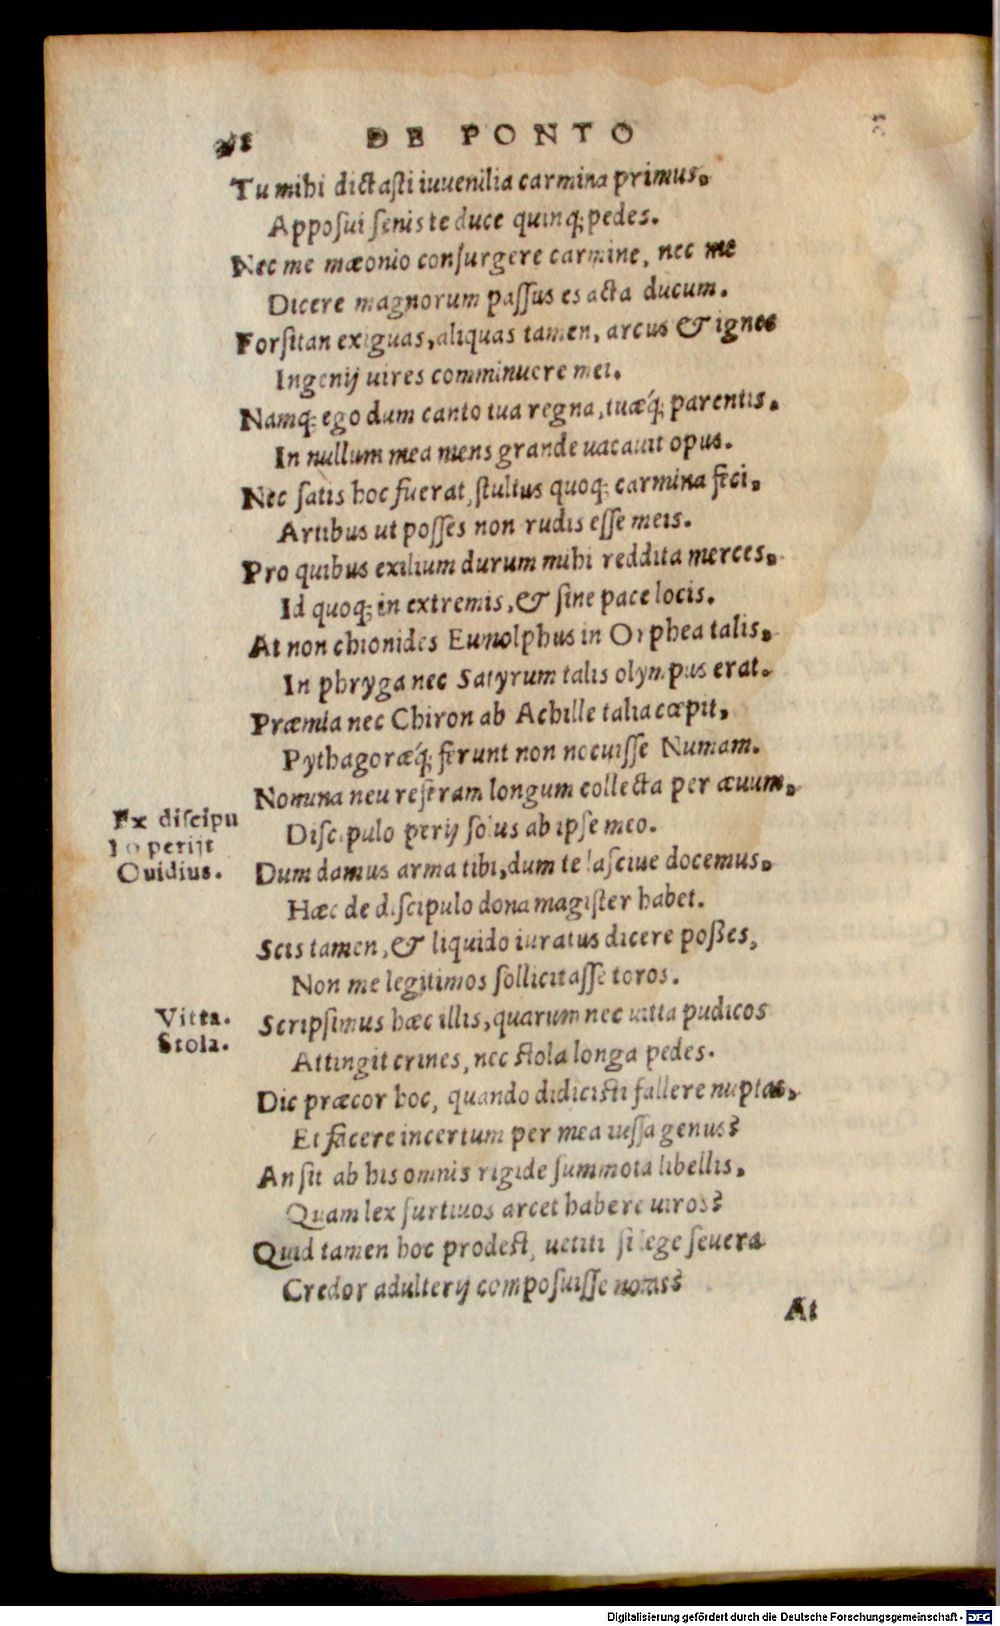 DE PONTO
Tu mihi dictasti iuuenilia carmina primus.
Apposui senis te duce quinq; pedes.
Nec me mæonio consurgere carmine, nec me
Dicere magnorum passus es acta ducum.
Forsitan exiguas, aliquas tamen, arcus & ignes
Ingenij uires comminuere mei.
Namq; ego dum canto tua regna, tuæq́; parentis.
In nullum mea mens grande uacauit opus.
Nec satis hoc fuerat, stultus quoq; carmina feci.
Artibus ut posses non rudis esse meis.
Pro quibus exilium durum mihi reddita merces.
Id quoq; in extremis, & sine pace locis.
At non chionides Eumolphus in Orphea talis.
In phryga nec Satyrum talis olympus erat.
Præmia nec Chiron ab Achille talia cœpit,
Pythagoræq́; ferunt non nocuisse Numam.
Nomina neu referam longum collecta per æuum.
Ex discipu
lo perijt
Ouidius.
Discipulo perij solus ab ipse meo.
Dum damus arma tibi, dum te lasciue docemus.
Hæc de discipulo dona magister habet.
Scis tamen, & liquido iuratus dicere poßes,
Non me legitimos sollicitasse toros.
Vitta.
Stola.
Scripsimus hæc illis, quarum nec uitta pudicos
Attingit crines, nec stola longa pedes.
Dic præcor hoc, quando didicisti fallere nuptas,
Et facere incertum per mea iussa genus?
An sit ab his omnis rigide summota libellis,
Quam lex furtiuos arcet habere uiros?
Quid tamen hoc prodest, uetiti si lege seuera
Credor adulterij composuisse notas?
At
Digitalisierung gefördert durch die Deutsche Forschungsgemeinschaft - DFG